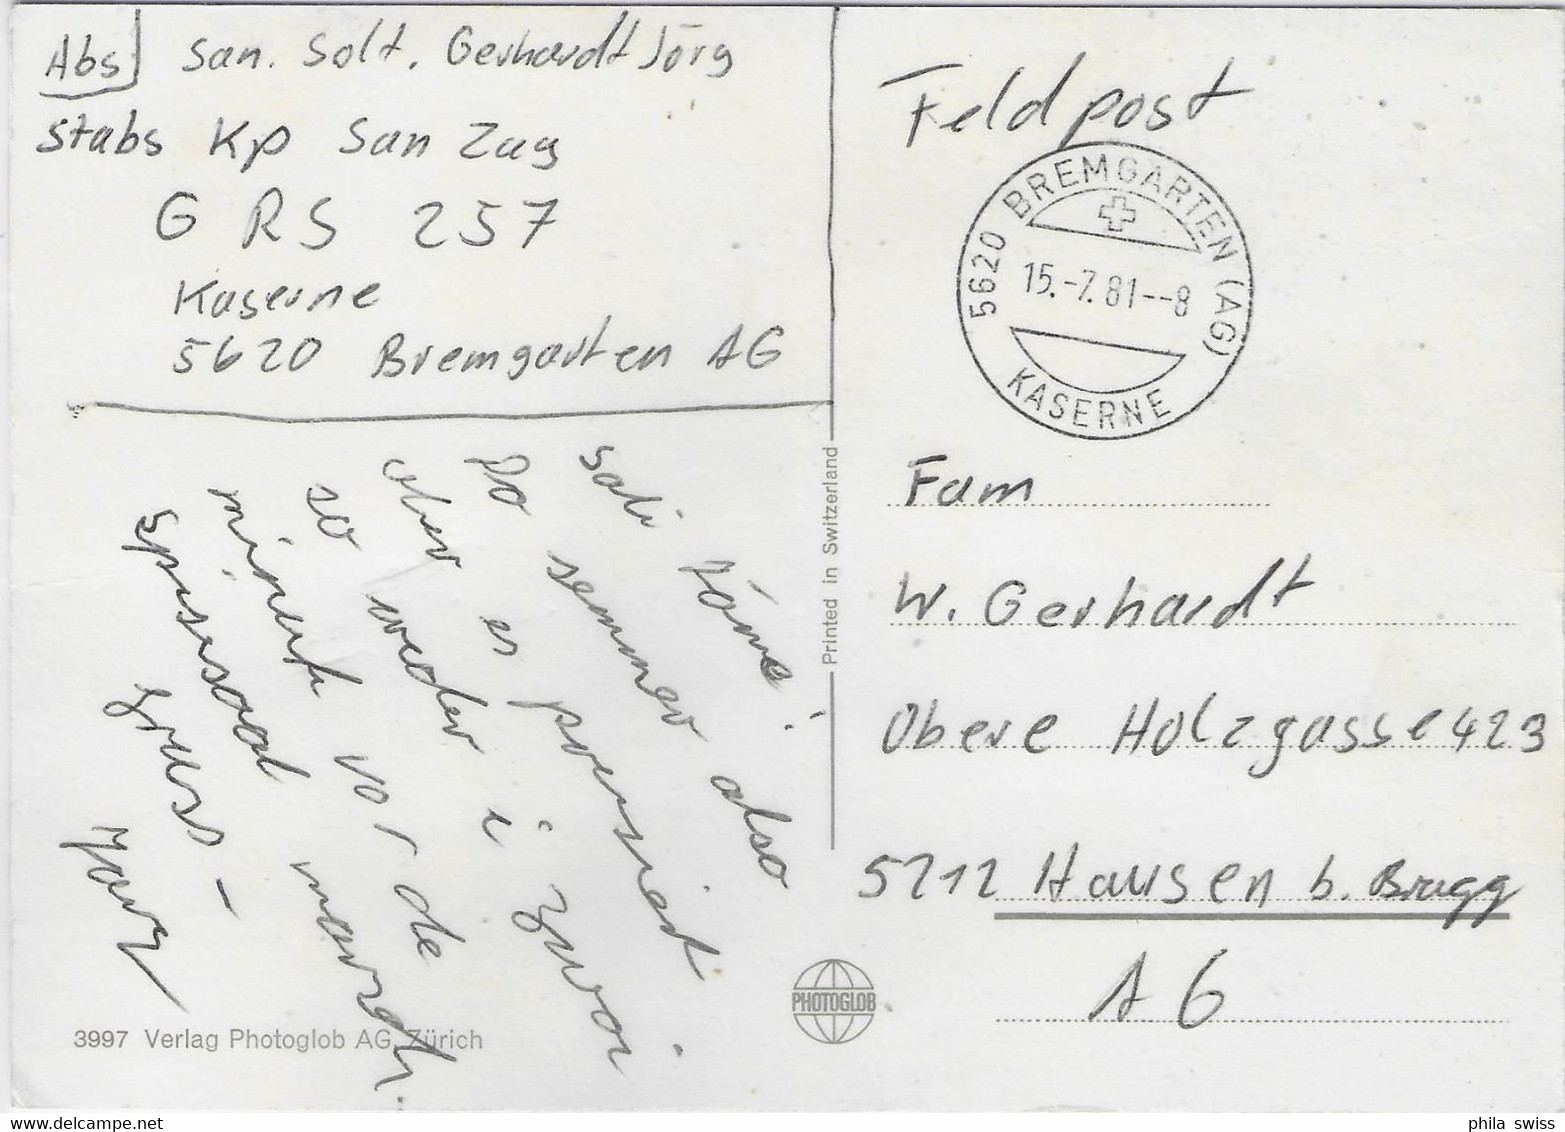 Abs] San. Solt. Gerhardt Jörg
Stabs Kp San Zug
G RS 257
Kaserne
5620 Bremgarten AG
Sali
Do semmer also
aber er
so weder i zwoi
minut vor de
spiissaal marsch.
gruss -
Jörg
3997 Verlag Photoglob AG, Zürich
Printed in Switzerland
PHOTOGLOB
Feldpost
5620 BREMGARTEN (AG)
15.-7.81--8
KASERNE
Fam
W. Gerhardt
Obere Holzgasse 423
5212 Hausen b. Brugg
AG
www.delcampe.net
phila swiss